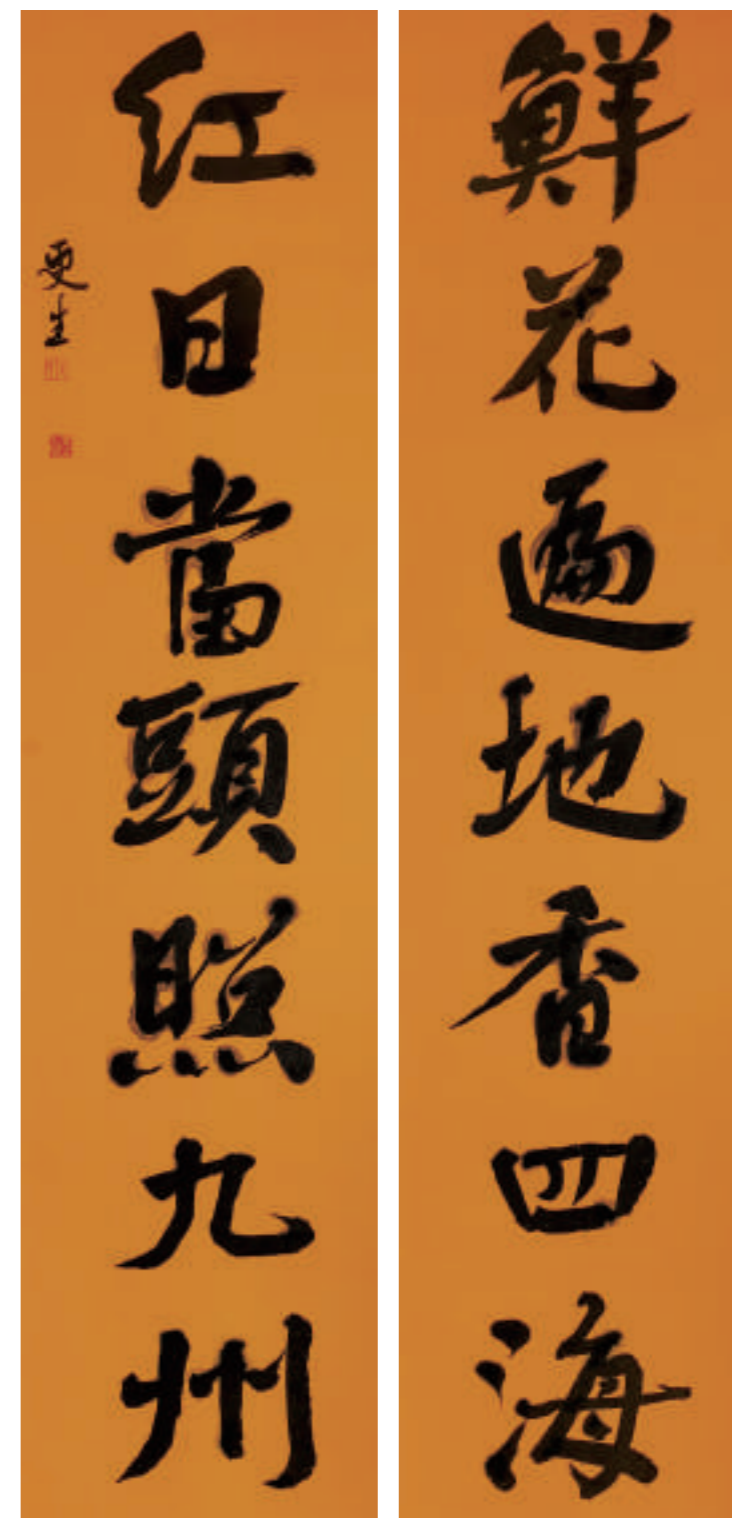 鮮花遍地香四海
红日當頭照九州
更生